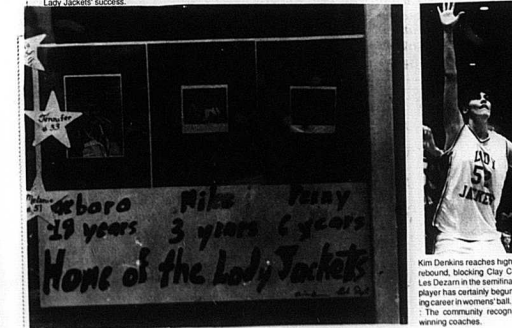 Lady Jackets' success.
Jennifer
#33
#51
Mike Penny
19 years 3 years 6 years
Home of the Lady Jackets
LADY
JACKETS
Kim Denkins reaches high
rebound, blocking Clay C
Les Dezarn in the semifina
player has certainly begun
ing career in womens' ball.
: The community recogn
winning coaches.